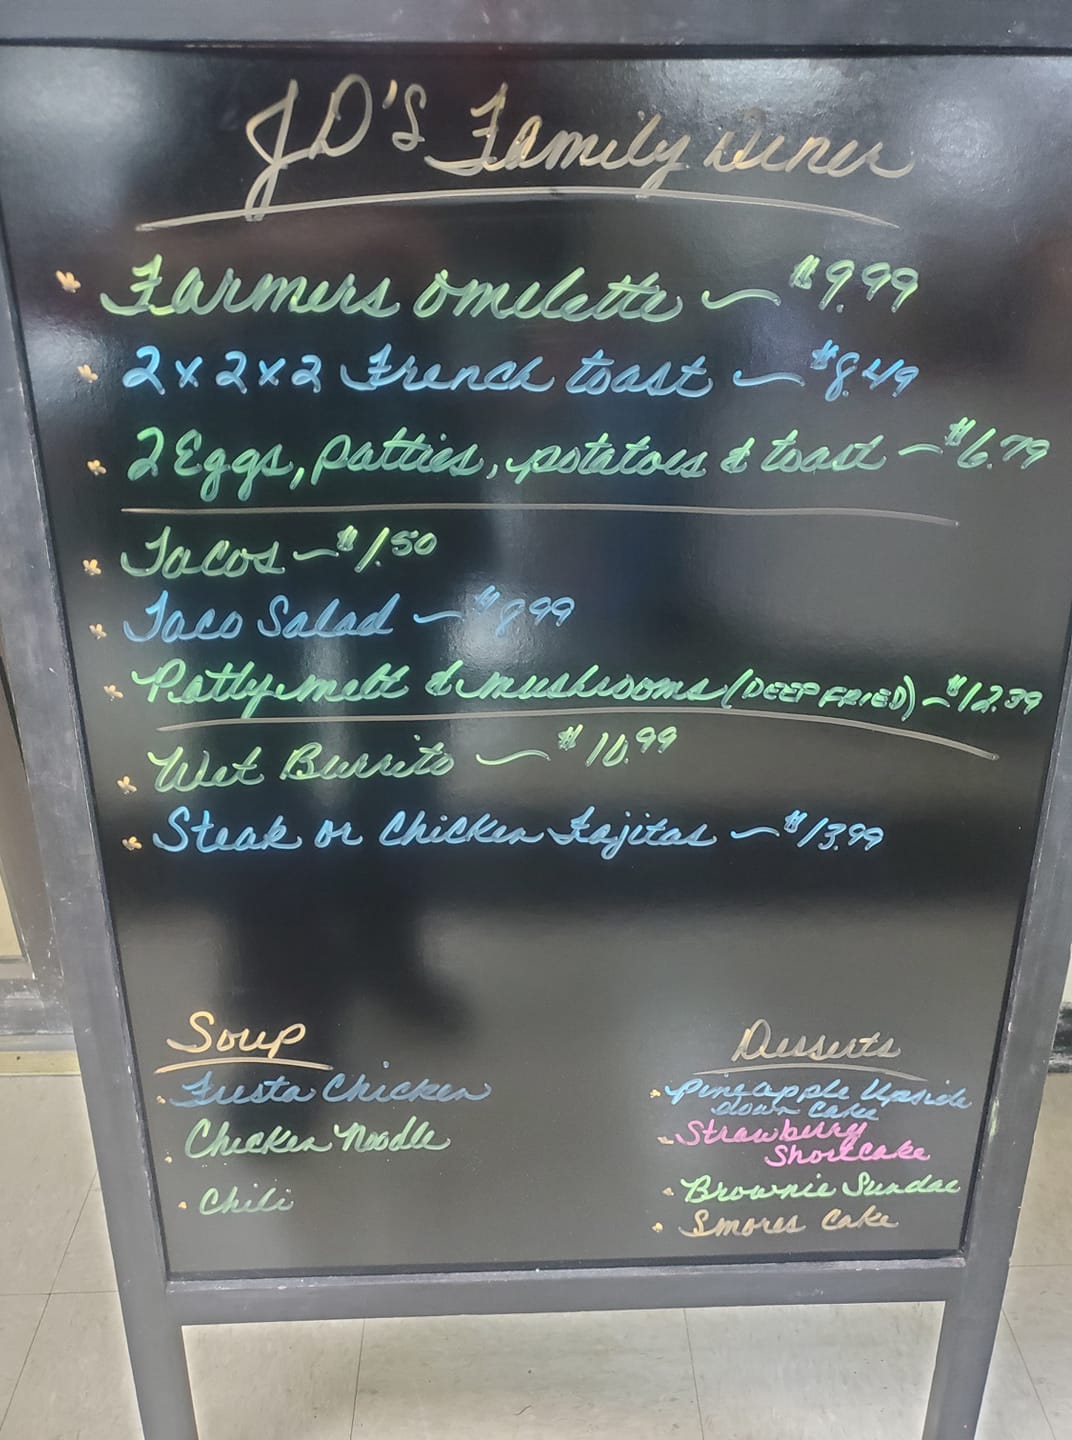 JD's Family Diner
Farmers omelette — $9.99
2x2x2 French toast — $8.49
2 Eggs, patties, potatoes & toast — $6.79
Tacos — $1.50
Taco Salad — $8.99
Patty melt & mushrooms (DEEP FRIED) — $12.39
Wet Burrito — $10.99
Steak or Chicken Fajitas — $13.99
Soup
Fiesta Chicken
Chicken Noodle
Chili
Desserts
Pineapple Upside
down cake
Strawberry
Shortcake
Brownie Sundae
Smores Cake